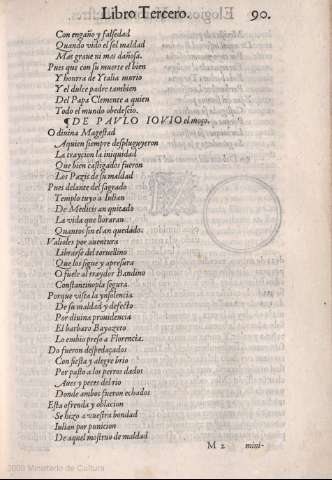 Libro Tercero. 90.
Con engaño y falsedad
Quando vido el sol maldad
Mas graue ni mas dañosa.
Pues que con su muerte el bien
Y honrra de Ytalia murio
Y el dulce padre tambien
Del Papa Clemente a quien
Todo el mundo obedescio.
¶DE PAVLO IOVIO el moço.
O diuina Magestad
A quien siempre desplugyeron
La traycion la iniquidad
Que bien castigados fueron
Los Pazis de su maldad
Pues delante del sagrado
Templo tuyo a Iulian
De Medicis an quitado
La vida que lloraran
Quantos sin el an quedado.
Valoles por auentura
Librarse del toruellino
Que los sigue y apresura
O fuele al traydor Bandino
Constantinopla segura.
Porque vista la ynsolencia
De su maldad y defecto
Por diuina prouidencia
El barbaro Bayazeto
Lo embio preso a Florencia.
Do fueron despedaçados
Con fiesta y alegre brio
Por pasto a los perros dados
Aues y peces del rio
Donde ambos fueron echados
Esta ofrenda y oblacion
Se hizo a vuestra bondad
Iulian por punicion
De aquel mostruo de maldad
M 2 mini-
2009 Ministerio de Cultura